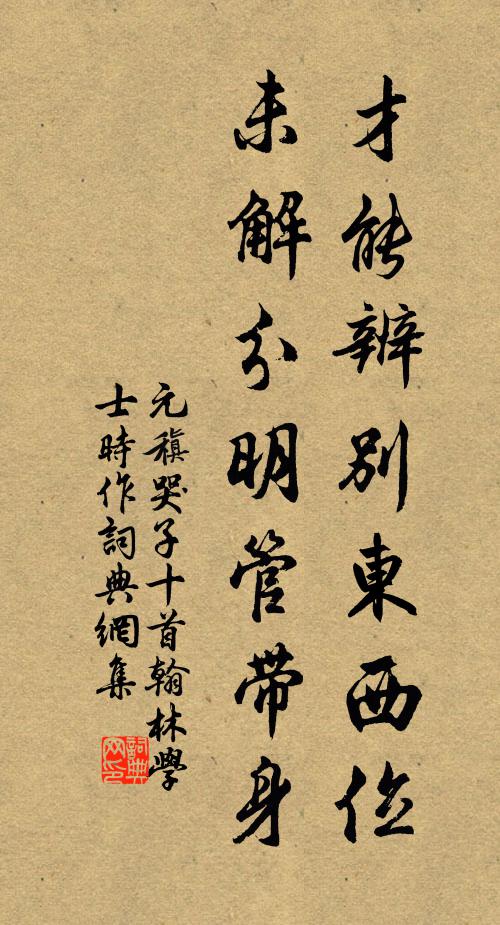 才能辨別東西位
未解分明管帶身
元稹哭子十首翰林學
士時作詞典網集
詞典
网印